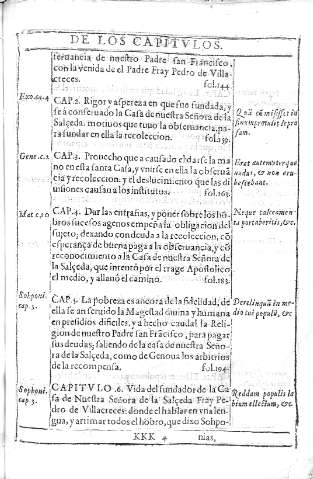 DE LOS CAPITVLOS.
seruancia de nuestro Padre san Francisco,
con la venida de el Padre Fray Pedro de Villa-
creces. fol.144.
Exo.
CAP.2. Rigor y aspereza en que fue fundada, y
se à conseruado la Casa de nuestra Señora de la
Salçeda, motiuos que tuuo la obseruancia, pa-
ra fundar en ella la recoleccion. fol.159.
in
sinum
sam.
Gene.c.2.
CAP.3. Prouecho que a causado el darse la ma
no en esta santa Casa, y vnirse en ella la obserua
cia y recoleccion. y el deslucimiēto que las di-
uisiones causan a los institutos. fol.165.
Erat autem vterque
nudus, & non eru-
bescebant.
Mat c.10
CAP.4. Dar las entrañas, y poner sobre los hō-
bros sucesos agenos empeña la obligacion del
sujeto; dexando con deuda a la recoleccion, cō
esperança de buena paga a la obseruancia, y cō
reconocimiento a la Casa de nuestra Señora de
la Salçeda, que intentò por el trage Apostolico
el medio, y allanò el camino. fol.183.
Neque calceamen
ta portaberitis, &c.
Sophoni.
cap 3.
CAP.5. La pobreza es ancora de la fidelidad, de
ella se an seruido la Magestad diuina y humana
en presidios dificiles, y à hecho caudal la Reli-
gion de nuestro Padre san Frācisco, para pagar
sus deudas; saliendo de la casa de nuestra Seño-
ra de la Salçeda, como de Genoua los arbitrios
de la recompensa. fol.194.
Derelinquā in me-
dio tui populū, &c
Sophoni.
cap 3.
CAPITVLO .6. Vida del fundador de la Ca
sa de Nuestra Señora de la Salçeda Fray Pe-
dro de Villacreces: donde el hablar en vna len-
gua, y arrimar todos el hōbro, que dixo Sopho-
Reddam populis la
bium electum, &c.
KKK 4
nias,